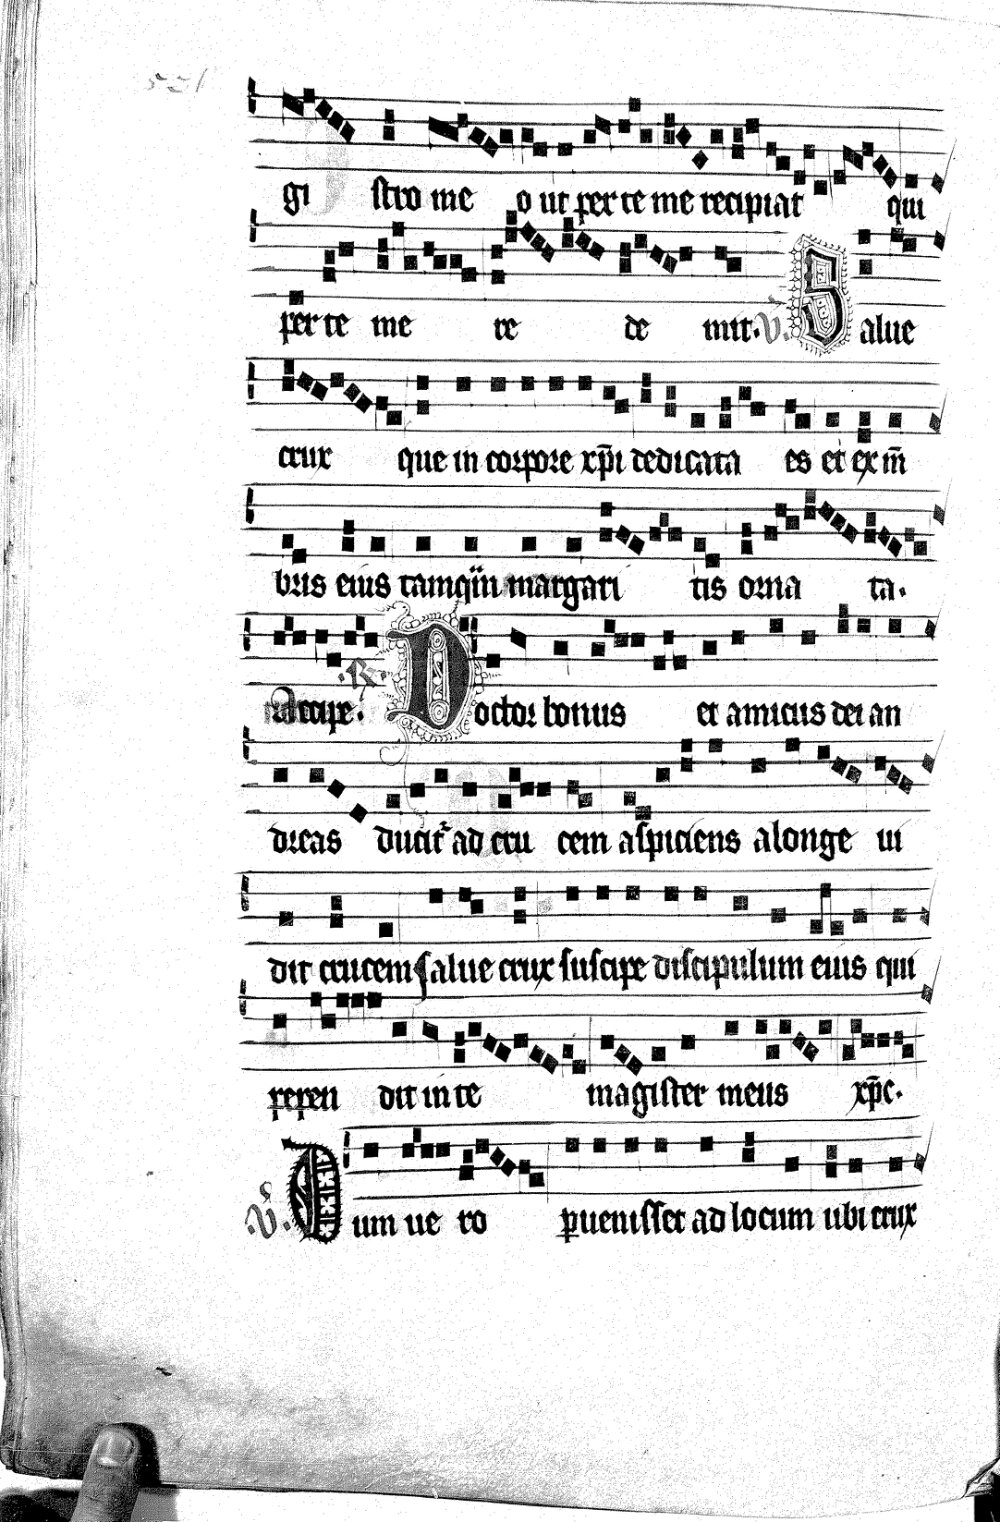 521
gi stro me o ut per te me recipiat qui
per te me re de mit. V. Salue
crux que in corpore xp̄i dedicata es et ex m̄
bris eius tamq̈m margari tis orna ta.
Accipe. R. Doctor bonus et amicus dei an
dreas ducit᷑ ad cru cem aspiciens alonge ui
dit crucem salue crux suscipe discipulum eius qui
pepen dit in te magister meus xp̄c.
V. Dum ue ro ꝑuenisset ad locum ubi crux